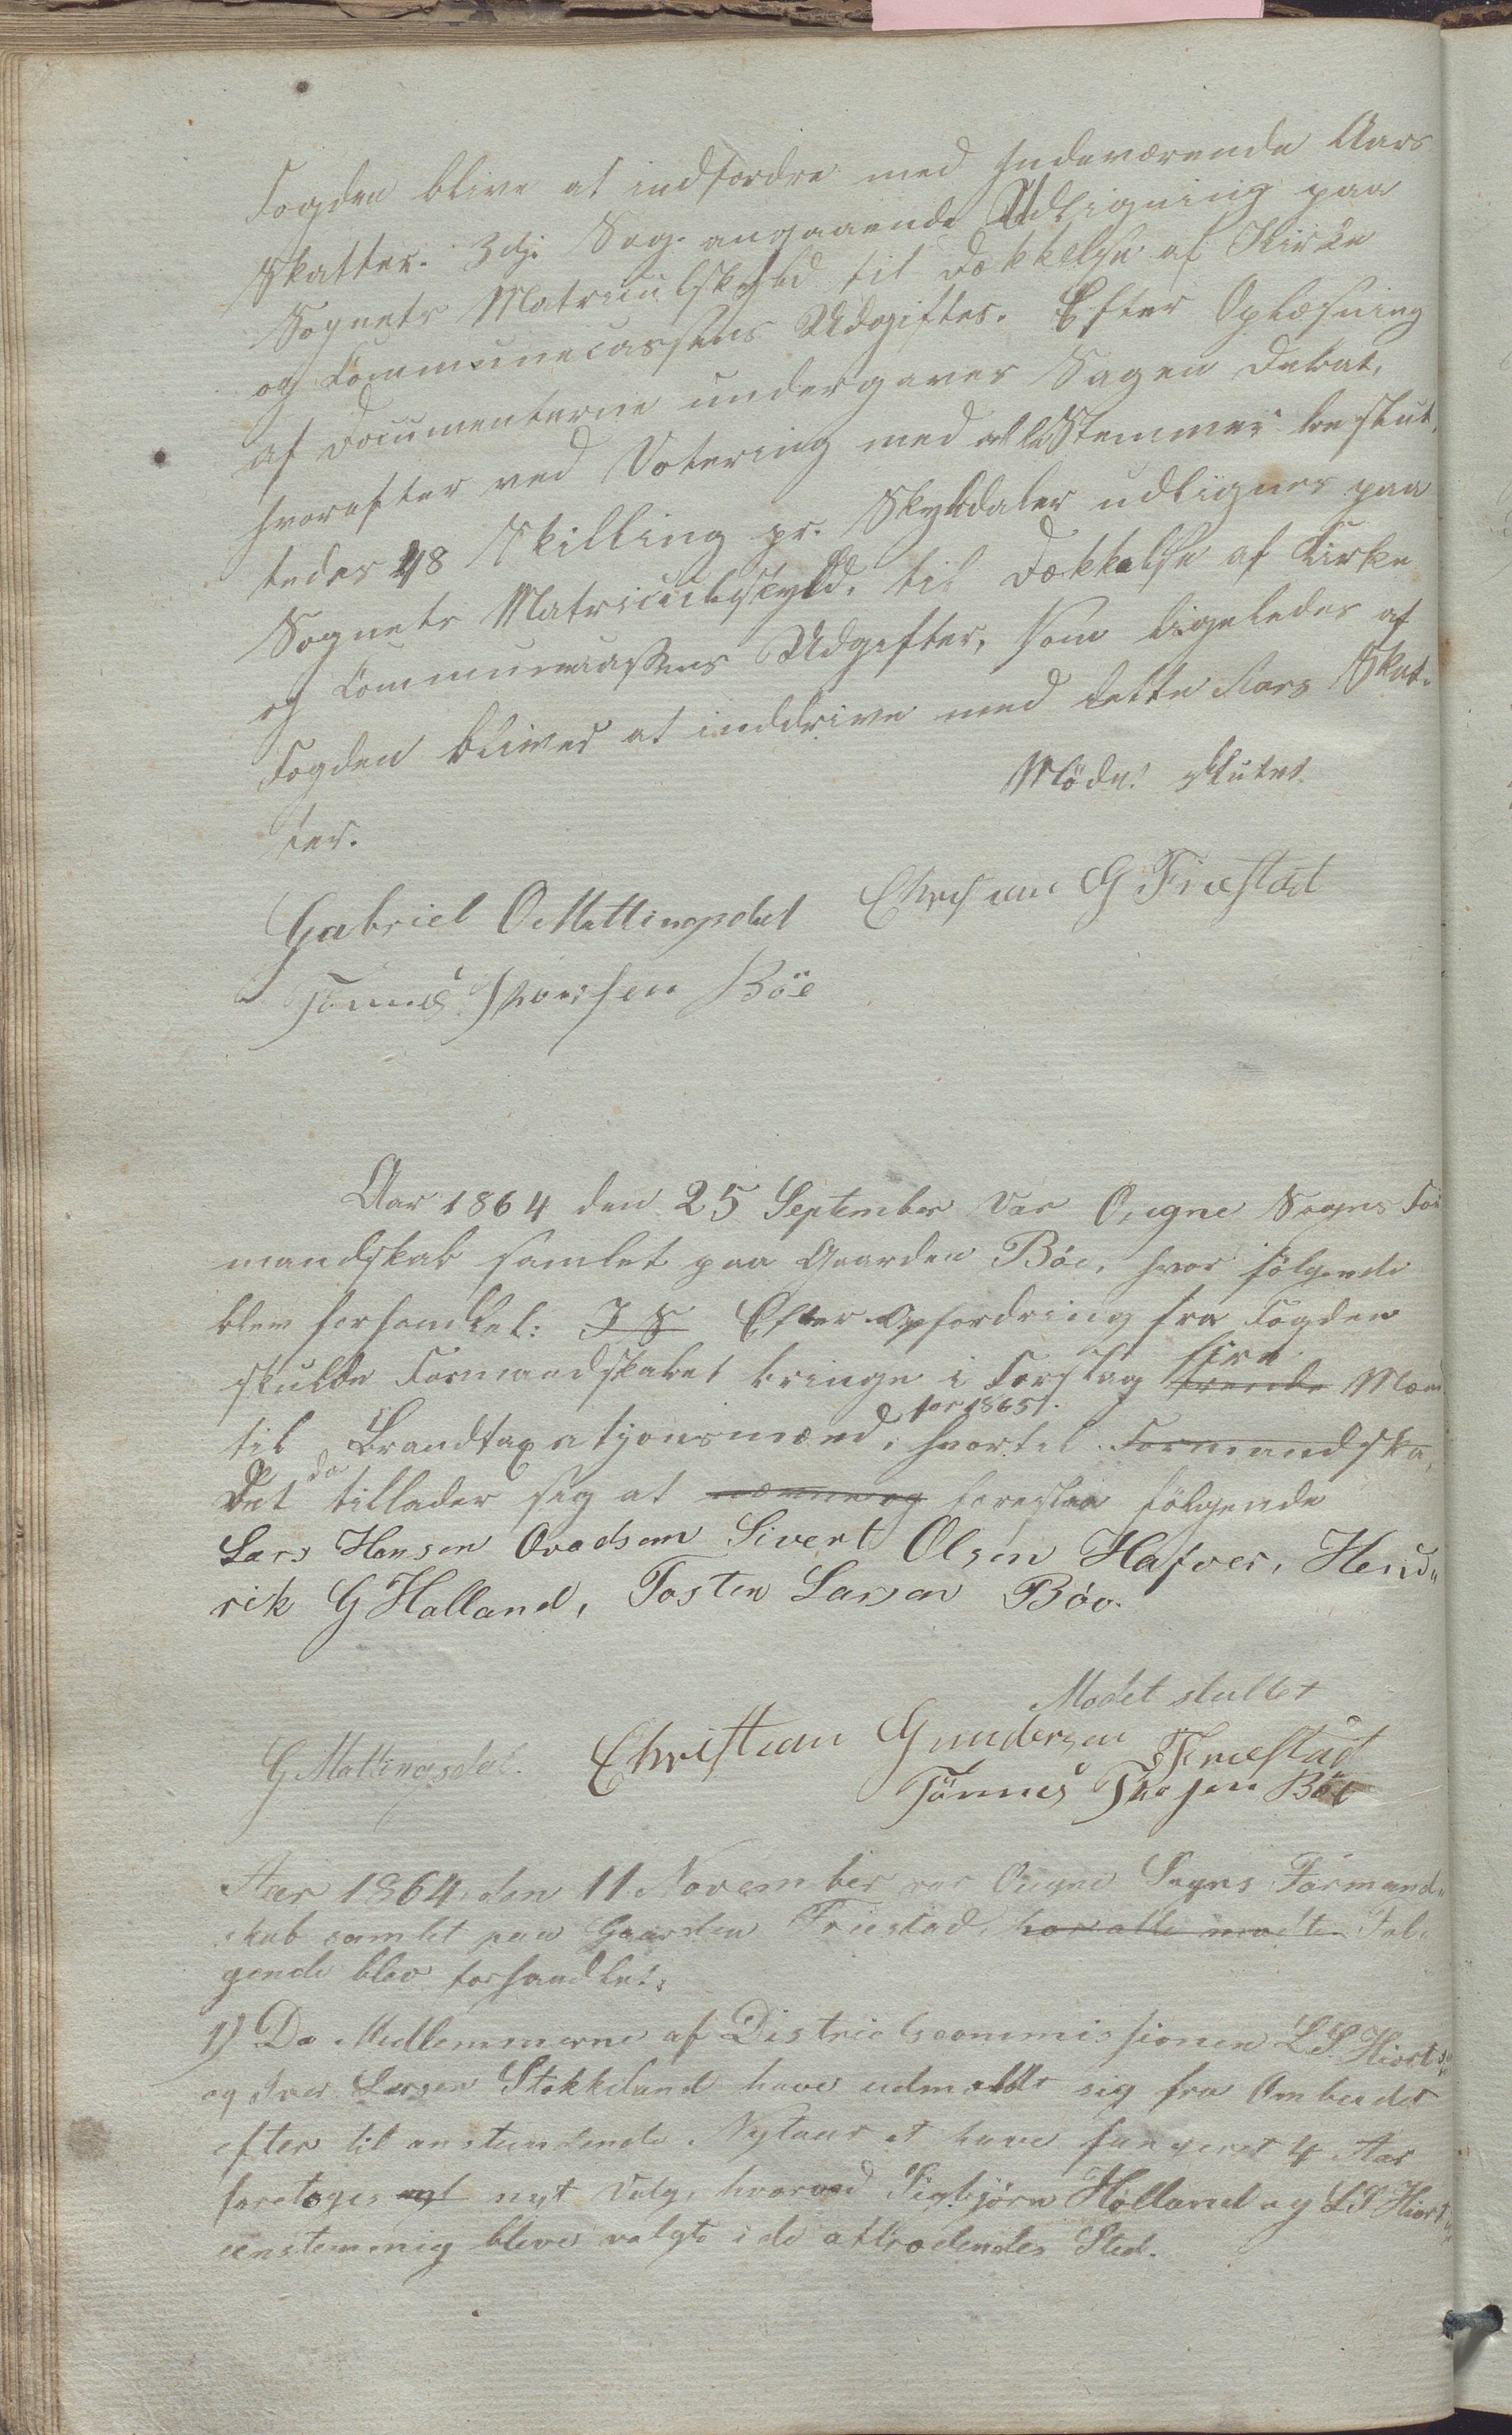 Fogden blive at indfordre med Indeværende Aars
Skatter. 3die Sag. angaaende Udligning paa
Sognets Matriculskyld til Dækkelse af Kirke
og Communecassens Udgifter. Efter Oplæsning
af Documenterne undergaves Sagen Debat,
hvorefter ved Votering med alle Stemmer beslut,
tedes 48 Skilling pr. Skylddaler udlignes paa
Sognets Matriculskyld, til Dækkelse af Kirke
og Communecassens Udgifter, som ligeledes af
Fogden bliver at inddrive med dette Aars Skat-
ter.
Mödet sluttet
Gabriel O Mattingsdal Christian G Friestad
Tönnes Thorsen Böe
Aar 1864 den 25 September var Ougne Sogns For
mandskab samlet paa Gaarden Böe, hvor fölgende
blev forhandlet: Efter Opfordring fra Fogden
skulde Formandskabet bringe i Forslag fire Mænd
til Brandtaxationsmænd, for 1865. hvortil Formandska,
Det da tillader sig at foreslaa fölgende
Lars Hansen Ovedsen Sivert Olsen Hafver, Hend"
rik G Holland, Tosten Larsen Böe.
Modet sluttet
G Mattingsdal. Christian Gundersen Friestad
Tönnes Thorsen Böe
Aar 1864, den 11 November var Ougne Sogns Formand"
skab samlet paa Gaarden Friestad, hvor alle modte Føl,
gende blev forhandlet:
1) Da Medlemmerne af Districtscommissionen L S Hiort
og Iver Larsen Stokkeland have udmeldt sig fra Ombudet
efter til anstundende Nytaar at have fungeret 4 Aar
foretoges nyt Valg, hvorved Sigbjörn Holland og L S Hiort
eenstemmig bleve valgte i de aftrædendes Sted.